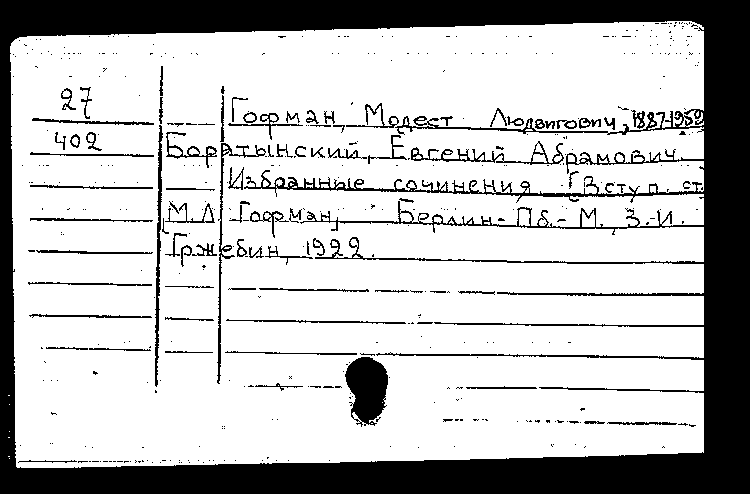 27
Гофман, Модест Людвигович, 1887-1959
402
Боратынский, Евгений Абрамович.
Избранные сочинения. [Вступ. ст.
М.Л. Гофман], Берлин-Пб.-М., З.-И.
Гржебин, 1922.